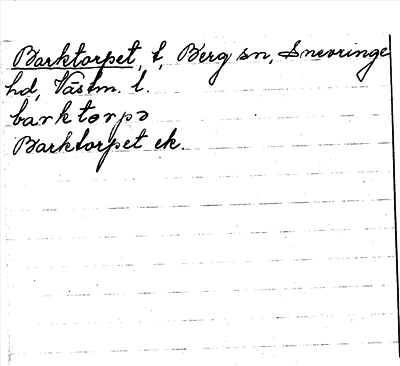 Barktorpet, t, Berg sn, Snevringe
hd, Västm. l.
barktɷrpə
Barktorpet ek.